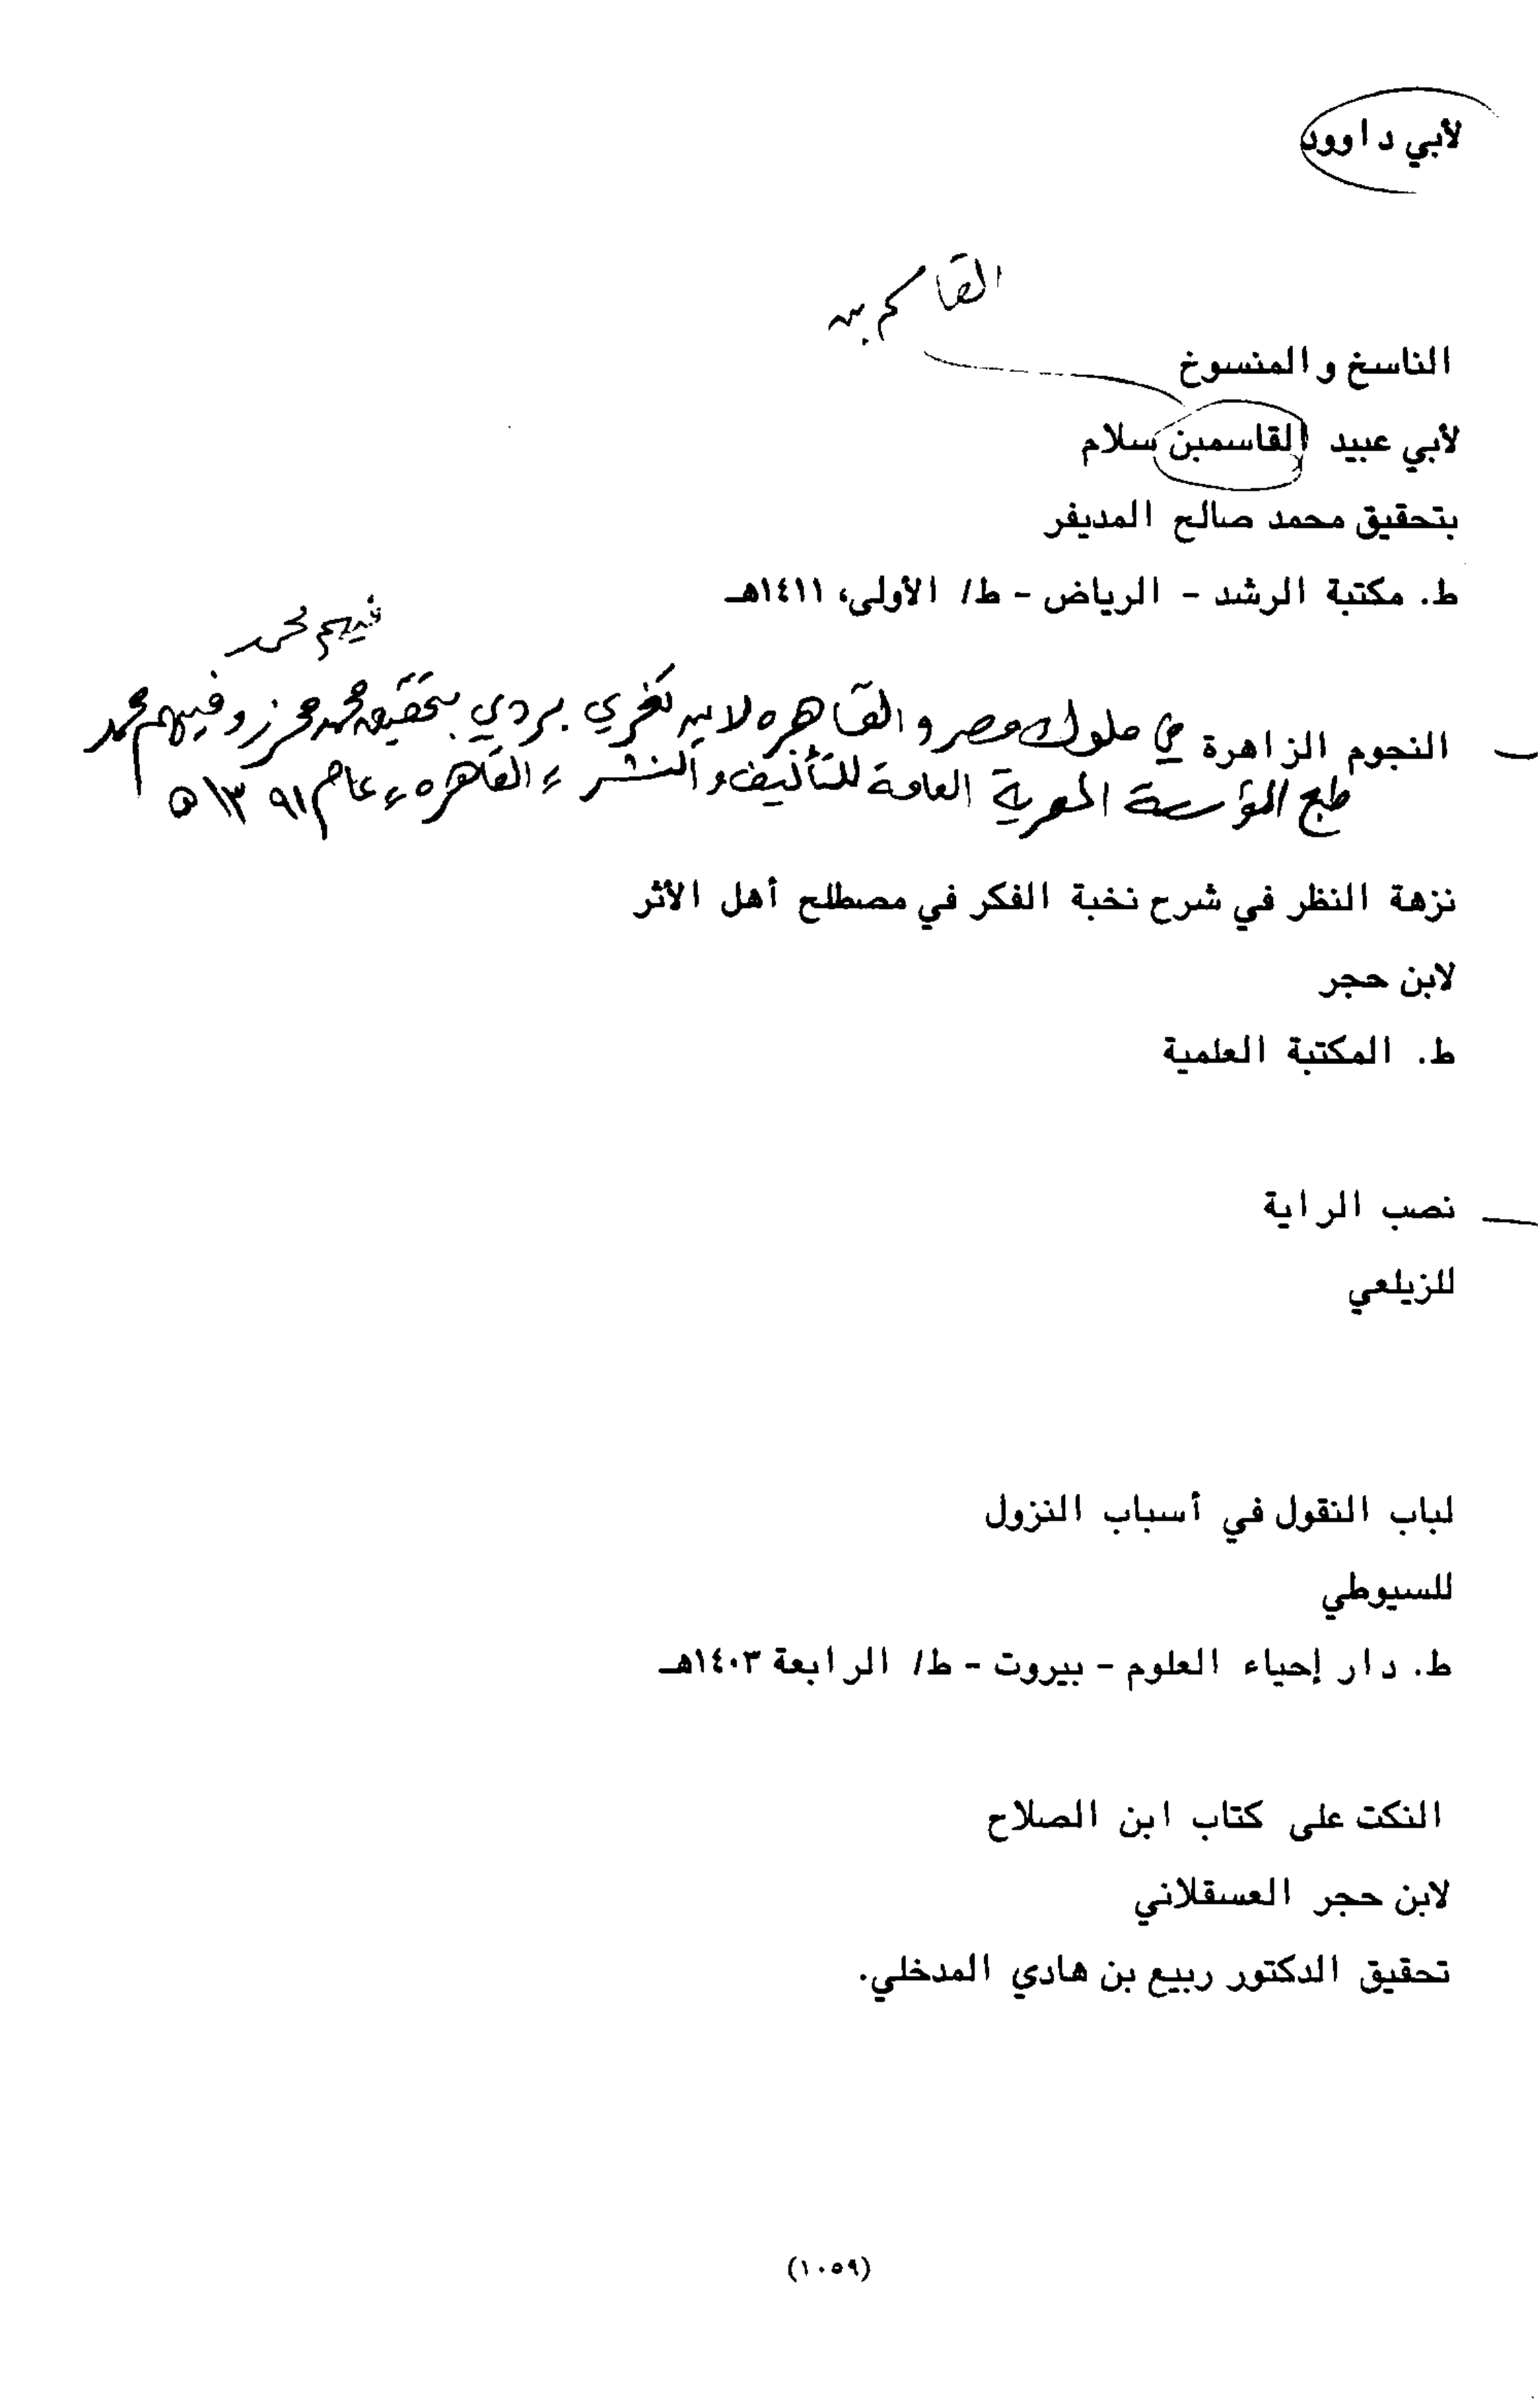 لأبي داوود
القاسم بن
الناسخ والمنسوخ
لأبي عبيد القاسمبن سلام
بتحقيق محمد صالح المديفر
ط. مكتبة الرشد - الرياض - ط/ الأولى، ١٤١١هـ
فهيم محمد
النجوم الزاهرة في ملوك مصر والقاهره لابن تغري بردي بتحقيق محمد محرز وفهيم محمد
طبع المؤسسة المصرية العامة للتأليف والنشر، القاهره، عام ١٣٩١ ه
نزهة النظر في شرح نخبة الفكر في مصطلح أهل الأثر
لابن حجر
ط. المكتبة العلمية
نصب الراية
للزيلعي
لباب النقول في أسباب النزول
للسيوطي
ط. دار إحياء العلوم - بيروت - ط/ الرابعة ١٤٠٣هـ
النكت على كتاب ابن الصلاح
لابن حجر العسقلاني
تحقيق الدكتور ربيع بن هادي المدخلي.
(١٠٥٩)